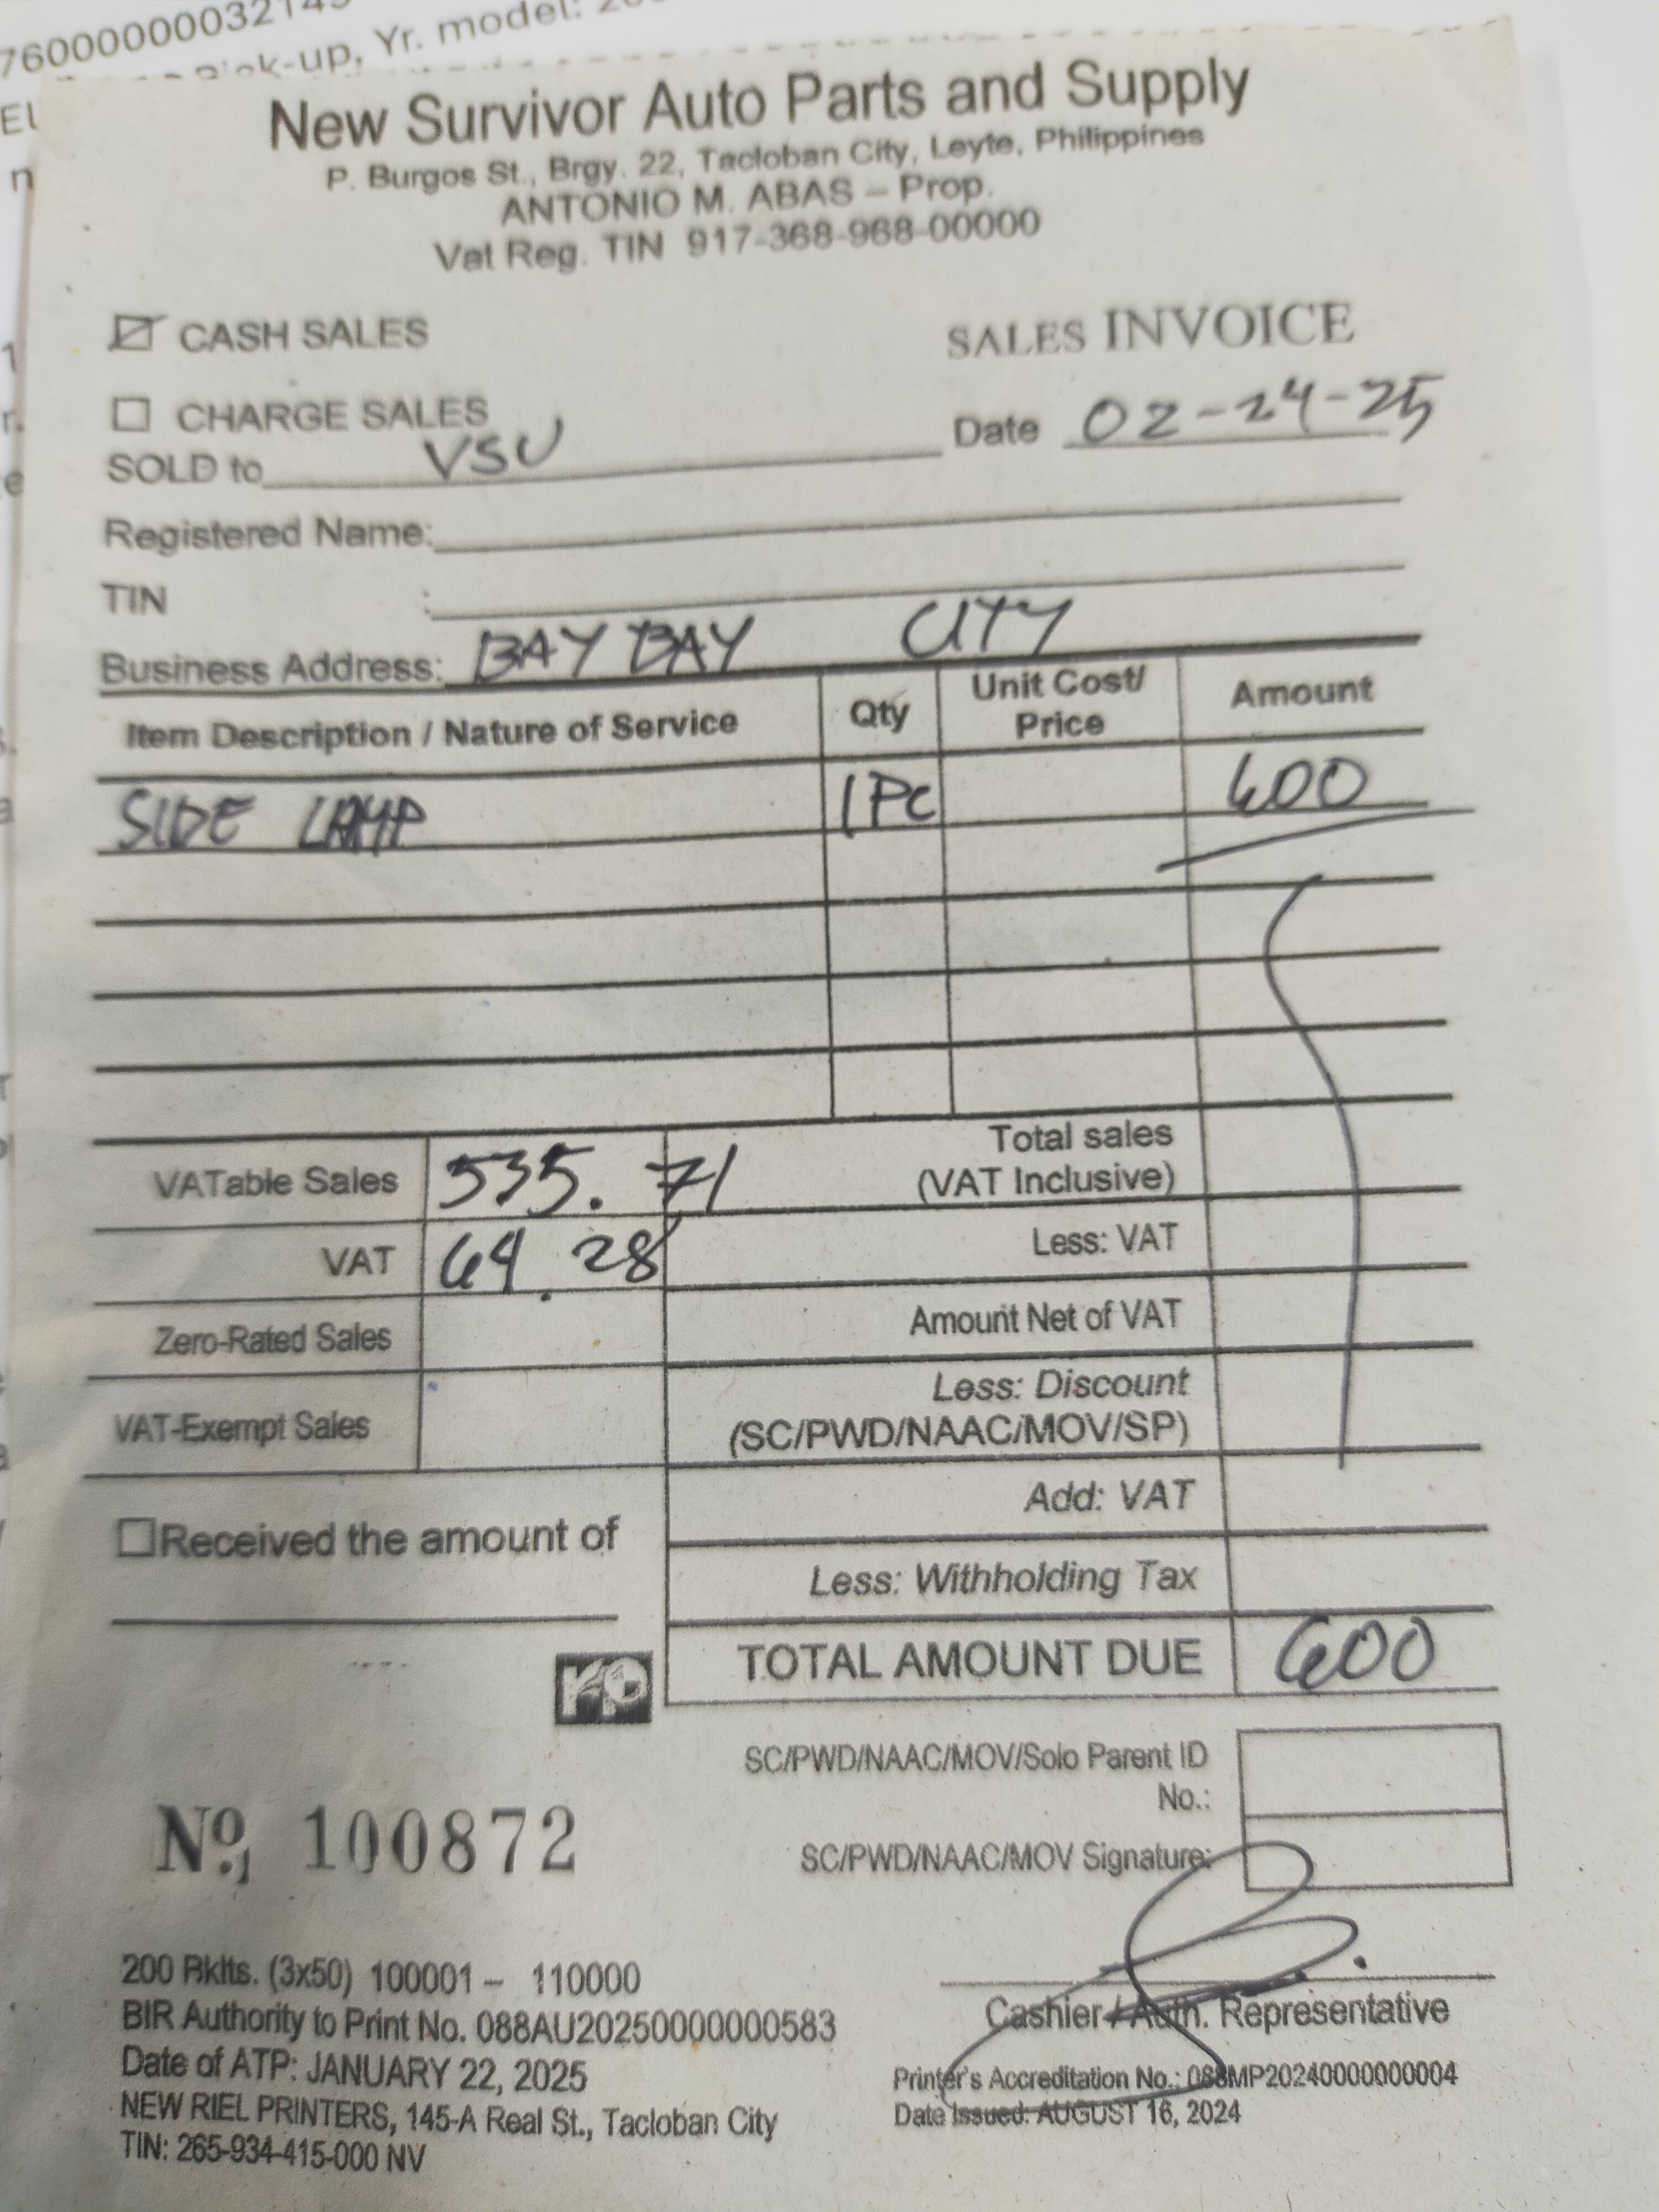 760000000032145
Pick-up, Yr. model:
New Survivor Auto Parts and Supply
P. Burgos St., Brgy. 22, Tacloban City, Leyte, Philippines
ANTONIO M. ABAS – Prop.
Vat Reg. TIN 917-368-968-00000
☑ CASH SALES
SALES INVOICE
☐ CHARGE SALES
Date 02-24-25
SOLD to VSU
Registered Name:
TIN :
Business Address: BAY BAY CITY
Item Description / Nature of Service Qty Unit Cost/ Price Amount
SIDE LAMP 1 PC 600
VATable Sales 535.71 Total sales (VAT Inclusive)
VAT 64.28 Less: VAT
Zero-Rated Sales Amount Net of VAT
VAT-Exempt Sales Less: Discount (SC/PWD/NAAC/MOV/SP)
Add: VAT
☐ Received the amount of
Less: Withholding Tax
TOTAL AMOUNT DUE 600
rp
SC/PWD/NAAC/MOV/Solo Parent ID No.:
No. 100872
SC/PWD/NAAC/MOV Signature:
200 Bklts. (3x50) 100001 – 110000
Cashier / Auth. Representative
BIR Authority to Print No. 088AU20250000000583
Date of ATP: JANUARY 22, 2025
Printer's Accreditation No.: 088MP20240000000004
Date Issued: AUGUST 16, 2024
NEW RIEL PRINTERS, 145-A Real St., Tacloban City
TIN: 265-934-415-000 NV